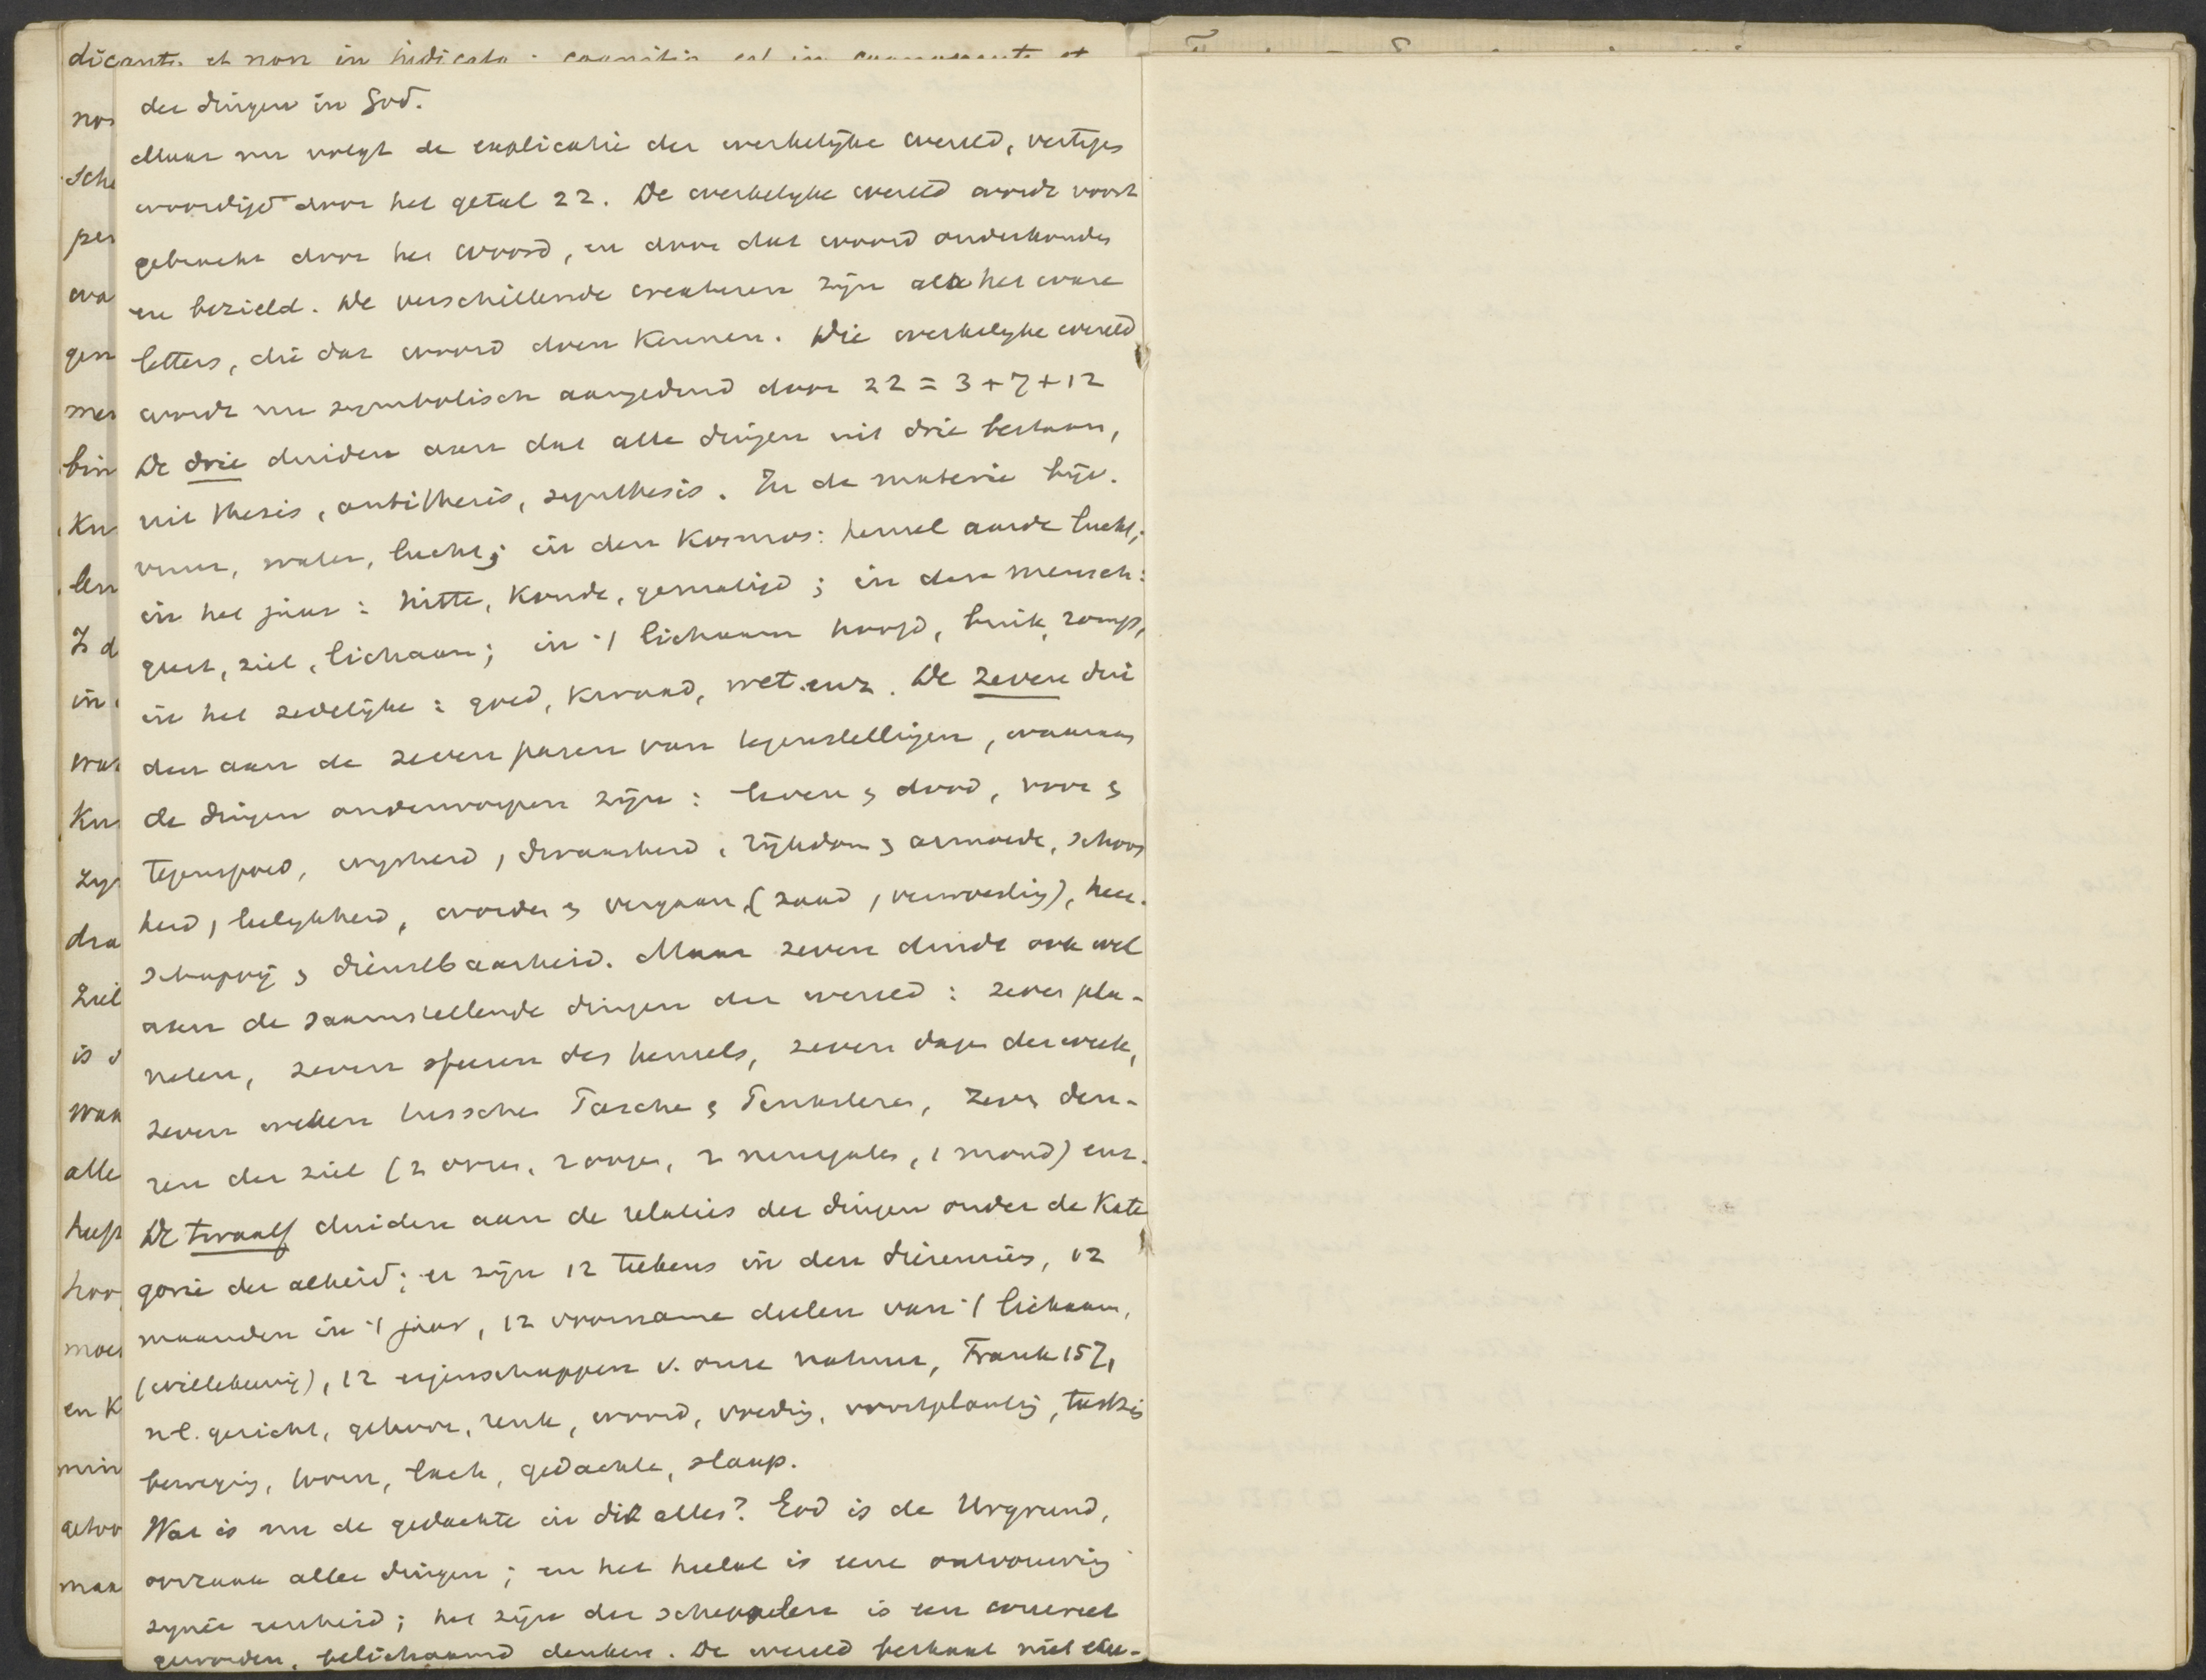 dicante et non in indicato: cognitio est in cognoscente et
der dingen in God.
Maar nu volgt de explicatie der werkelijke wereld, vertegen
woordigd door het getal 22. De werkelyke wereld wordt voort
gebracht door het woord, en door dat woord onderhouden
en bezield. De verschillende creaturen zijn als het ware
letters, die dat woord doen kennen. Die werkelyke wereld
wordt nu symbolisch aangeduid door 22 = 3 + 7 + 12
De drie duiden aan dat alle dingen uit drie bestaan,
uit thesis, antithesis, synthesis. In de materie bijv.
vuur, water, lucht; in den Kosmos: hemel aarde lucht;
in het jaar: hitte, koude, gematigd; in den mensch:
geest, ziel, lichaam; in 't lichaam hoofd, buik, romp,
in het zedelijke: goed, kwaad, wet. enz. De zeven dui
den aan de zeven paren van tegenstellingen, waaraan
de dingen onderworpen zijn: leven & dood, voor &
tegenspoed, wysheid, dwaasheid, rijkdom & armoede, schoon
heid, leelykheid, worden & vergaan (zaad, verwoesting), heer-
schappij & dienstbaarheid. Maar zeven duidt ook wel
aan de saamstellende dingen der wereld: zeven pla-
neten, zeven sferen des hemels, zeven dagen der week,
zeven weken tusschen Pasche & Pinksteren, zeven deu-
ren der ziel (2 ooren, 2 oogen, 2 neusgaten, 1 mond) enz.
De twaalf duiden aan de relaties der dingen onder de Kate
gorie der alheid; er zijn 12 teekens in den dierenriem, 12
maanden in 't jaar, 12 voorname deelen van 't lichaam,
12 eigenschappen v. onze natuur, Franck 157,
nl. gezicht, gehoor, reuk, woord, voeding, voortplanting, tastzin
beweging, toorn, lach, gedachte, slaap.
Wat is nu de gedachte in dit alles? God is de Urgrund,
oorzaak aller dingen; en het heelal is eene ontvouwing
zyner eenheid; het zijn der schepselen is een concreet
geworden, belichaamd denken. De wereld bestaat niet
nos
sche
per
wa
gen
men
bin
Kn
len
Is d
in
war
Kun
zyn
dra
ziel
is d
waa
alle
heeft
hoo
moe
en K
min
gehoo
maa